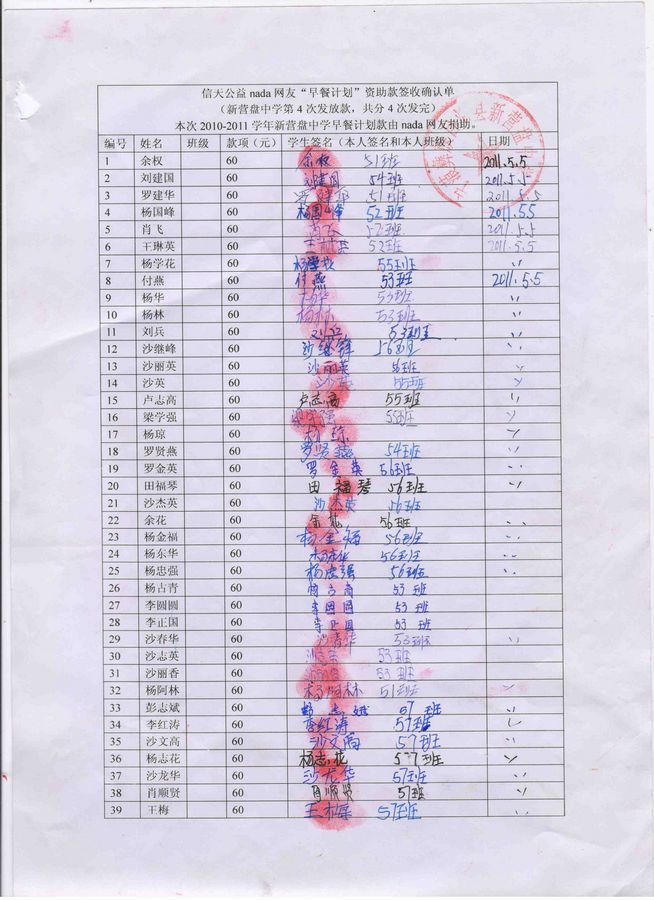 信天公益 nada 网友“早餐计划”资助款签收确认单
（新营盘中学第 4 次发放款，共分 4 次发完）
本次 2010-2011 学年新营盘中学早餐计划款由 nada 网友捐助。
编号 姓名 班级 款项（元） 学生签名（本人签名和本人班级） 日期
1 余权 60 余权 51班 2011.5.5
2 刘建国 60 刘建国 54班 2011.5.5
3 罗建华 60 51班 2011.5.5
4 杨国峰 60 杨国峰 52班 2011.5.5
5 肖飞 60 肖飞 52班 2011.5.5
6 王琳英 60 52班 2011.5.5
7 杨学花 60 55班 〃
8 付燕 60 付燕 53班 2011.5.5
9 杨华 60 杨华 53班 〃
10 杨林 60 杨林 53班 〃
11 刘兵 60 53班 〃
12 沙继峰 60 沙继锋 56班 〃
13 沙丽英 60 沙丽英 56班 〃
14 沙英 60 沙英 55班 〃
15 卢志高 60 卢志高 55班 〃
16 梁学强 60 梁学强 55班 〃
17 杨琼 60 杨琼 〃
18 罗贤燕 60 罗贤燕 54班 〃
19 罗金英 60 罗金英 56班 〃
20 田福琴 60 田福琴 56班 〃
21 沙杰英 60 沙杰英 56班
22 余花 60 余花 56班 〃
23 杨金福 60 杨金福 56班 〃
24 杨东华 60 杨东华 56班 〃
25 杨忠强 60 杨忠强 56班 〃
26 杨古青 60 53班
27 李圆圆 60 李圆圆 53班
28 李正国 60 李正国 53班
29 沙春华 60 沙春华 53班 〃
30 沙志英 60 沙志英 53班
31 沙丽香 60 53班
32 杨阿林 60 杨阿林 51班 〃
33 彭志斌 60 57班 〃
34 李红涛 60 李红涛 57班 〃
35 沙文高 60 沙文高 57班 〃
36 杨志花 60 杨志花 57班 〃
37 沙龙华 60 沙龙华 57班 〃
38 肖顺贤 60 肖顺贤 57班 〃
39 王梅 60 王梅 57班 〃